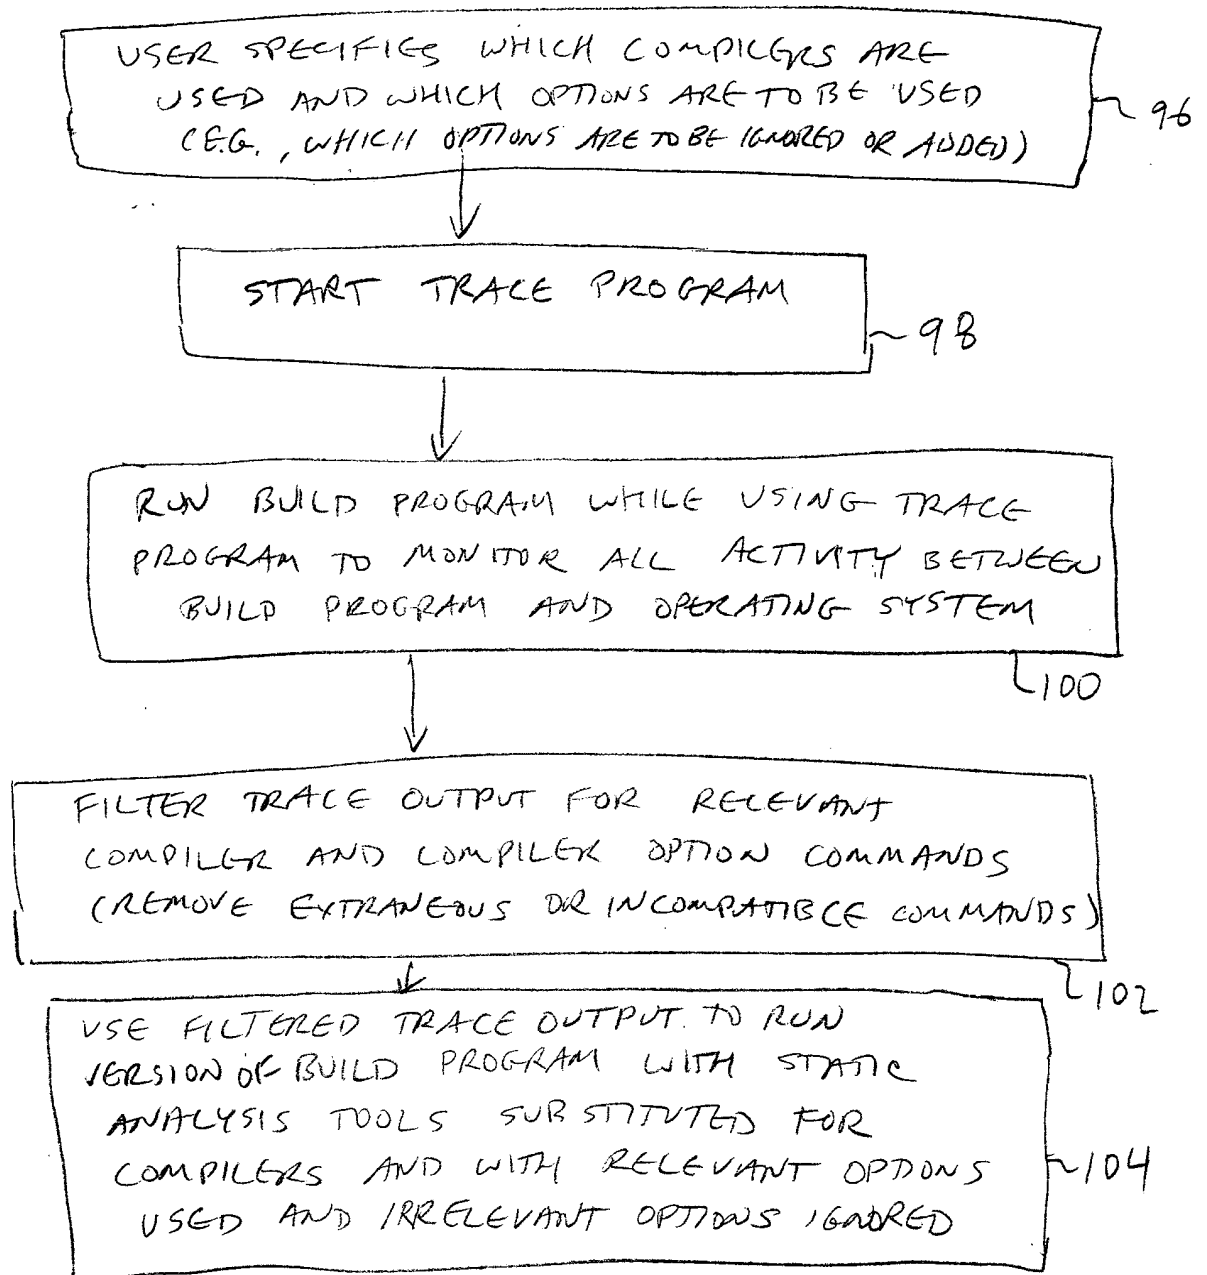 USER SPECIFIES WHICH COMPILERS ARE
USED AND WHICH OPTIONS ARE TO BE USED
(E.G., WHICH OPTIONS ARE TO BE IGNORED OR ADDED)
96
START TRACE PROGRAM
98
RUN BUILD PROGRAM WHILE USING TRACE
PROGRAM TO MONITOR ALL ACTIVITY BETWEEN
BUILD PROGRAM AND OPERATING SYSTEM
100
FILTER TRACE OUTPUT FOR RELEVANT
COMPILER AND COMPILER OPTION COMMANDS
(REMOVE EXTRANEOUS OR INCOMPATIBLE COMMANDS)
102
USE FILTERED TRACE OUTPUT TO RUN
VERSION OF BUILD PROGRAM WITH STATIC
ANALYSIS TOOLS SUBSTITUTED FOR
COMPILERS AND WITH RELEVANT OPTIONS
USED AND IRRELEVANT OPTIONS IGNORED
104